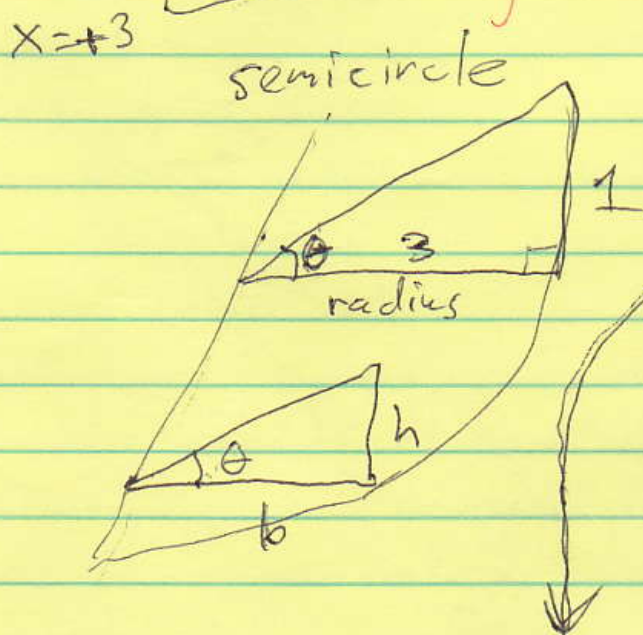 x=+3
semicircle
1
θ 3
radius
h
θ
b